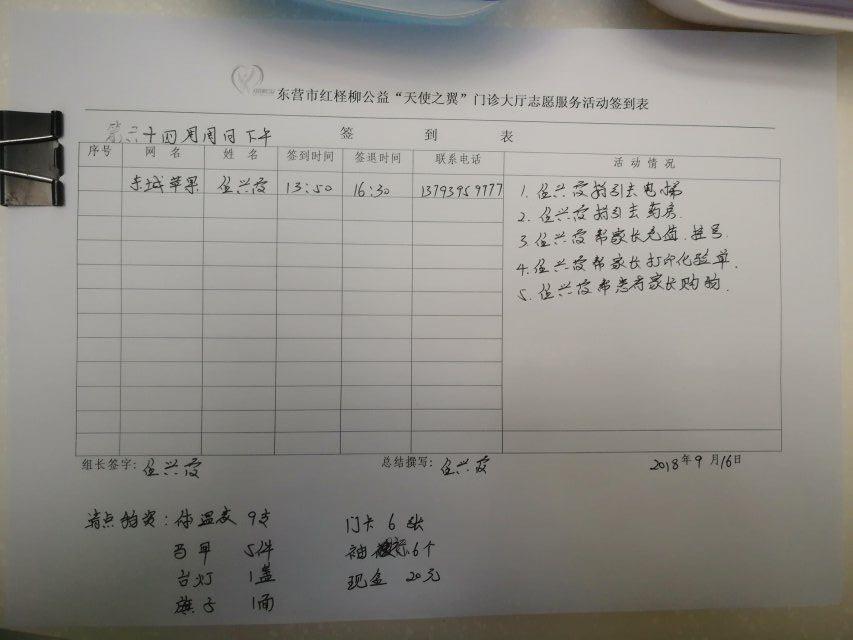 东营市红柽柳公益“天使之翼”门诊大厅志愿服务活动签到表
第六十四周周日下午 签 到 表
序号 网 名 姓 名 签到时间 签退时间 联系电话 活 动 情 况
东城苹果 伍兴霞 13:50 16:30 13793959777
1. 伍兴霞指引去电梯
2. 伍兴霞指引去药房.
3. 伍兴霞帮家长充值.挂号
4. 伍兴霞帮家长打印化验单.
5. 伍兴霞帮患者家长购物.
组长签字: 伍兴霞 总结撰写: 伍兴霞 2018年9月16日
清点物资: 体温表 9支 门卡 6张
马甲 5件 袖标 6个
台灯 1盏 现金 20元
旗子 1面